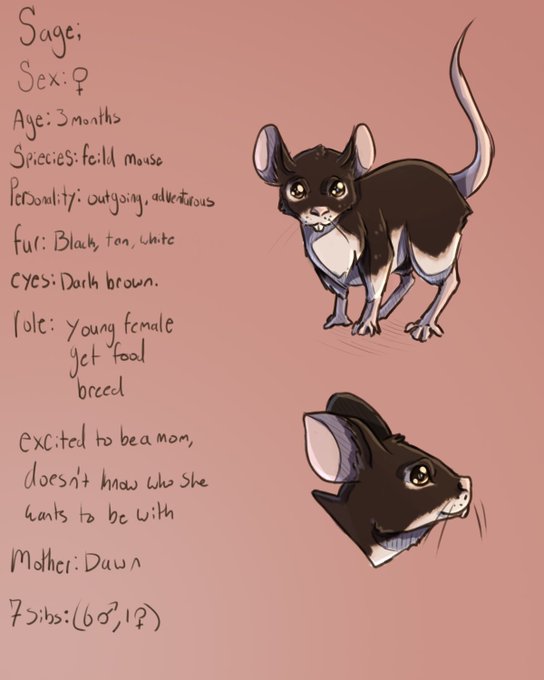 Sage;
Sex: ♀
Age: 3 months
Spiecies: feild mouse
Personality: outgoing, adventurous
fur: Black, tan, white
eyes: Dark brown.
role: young female
get food
breed
excited to be a mom,
doesn't know who she
wants to be with
Mother: Dawn
7 sibs: (6♂, 1♀)